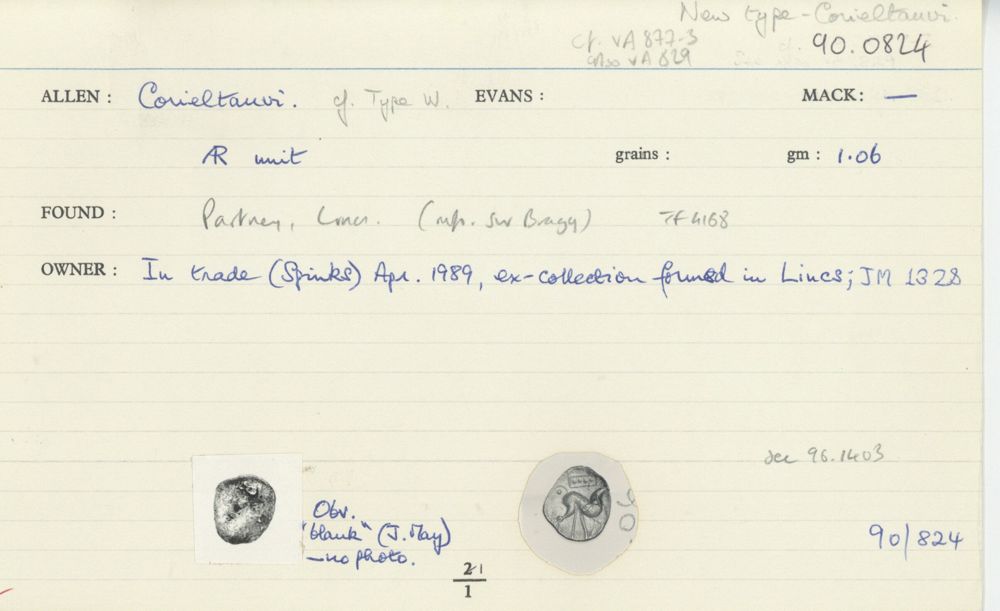 New type - Corieltauvi.
cf. VA 877-3
also VA 829
90.0824
ALLEN : Corieltauvi. cf. Type W. EVANS : MACK: —
AR unit grains : gm : 1.06
FOUND : Partney, Lincs. (info. Sur Bragg) TF 4168
OWNER : In trade (Spinks) Apr. 1989, ex-collection formed in Lincs; JM 1328
see 96.1403
Obv.
"blank" (J. May)
— no photo.
90/824
21
1